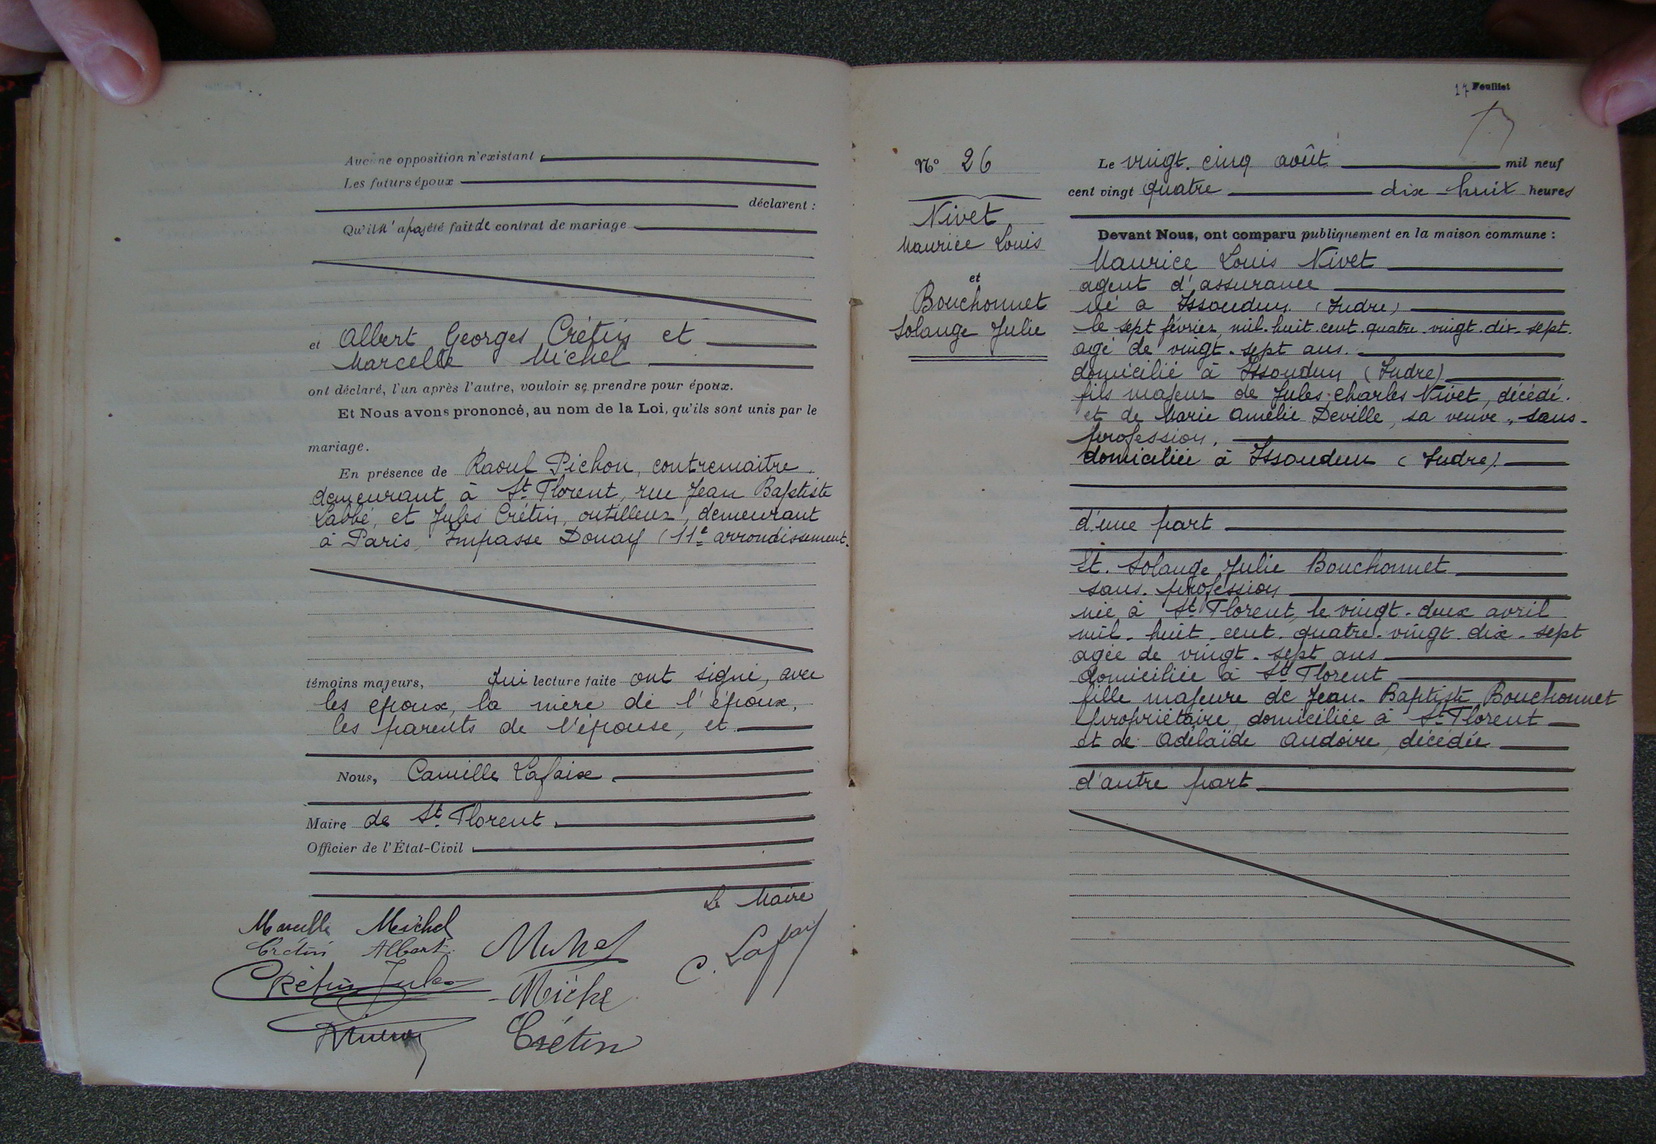 Aucune opposition n'existant
Les futurs époux
déclarent :
Qu'il n'a pas été fait de contrat de mariage
et Albert Georges Crétin et
Marcelle Michel
ont déclaré, l'un après l'autre, vouloir se prendre pour époux.
Et Nous avons prononcé, au nom de la Loi, qu'ils sont unis par le
mariage.
En présence de Raoul Pichon, contremaitre
demeurant à St Florent, rue Jean Baptiste
Labbé, et Jules Crétin, outilleur, demeurant
à Paris, Impasse Donay (11e arrondissement.
témoins majeurs, qui lecture faite ont signé, avec
les époux, la mère de l'époux,
les parents de l'épouse, et
Nous, Camille Lafaix
Maire de St Florent
Officier de l'État-Civil
Le Maire
Marcelle Michel
Crétin Albert
Crétin Jules
Michel
Crétin
C. Lafaix
17 Feuillet
N° 26
Nivet
Maurice Louis
et
Bouchonnet
Solange Julie
Le vingt-cinq août mil neuf
cent vingt quatre dix-huit heures
Devant Nous, ont comparu publiquement en la maison commune :
Maurice Louis Nivet
agent d'assurance
né à Issoudun (Indre)
le sept février mil-huit-cent-quatre-vingt-dix-sept
agé de vingt-sept ans.
domicilié à Issoudun (Indre)
fils majeur de Jules-Charles Nivet, décédé.
et de Marie Amélie Deville, sa veuve, sans-
profession.
domiciliée à Issoudun (Indre)
d'une part
Et Solange Julie Bouchonnet
sans profession
née à St Florent, le vingt-deux avril
mil-huit-cent-quatre-vingt-dix-sept
agée de vingt-sept ans
domiciliée à St Florent
fille majeure de Jean-Baptiste Bouchonnet
propriétaire, domiciliée à St Florent
et de Adélaïde Audoire, décédée
d'autre part